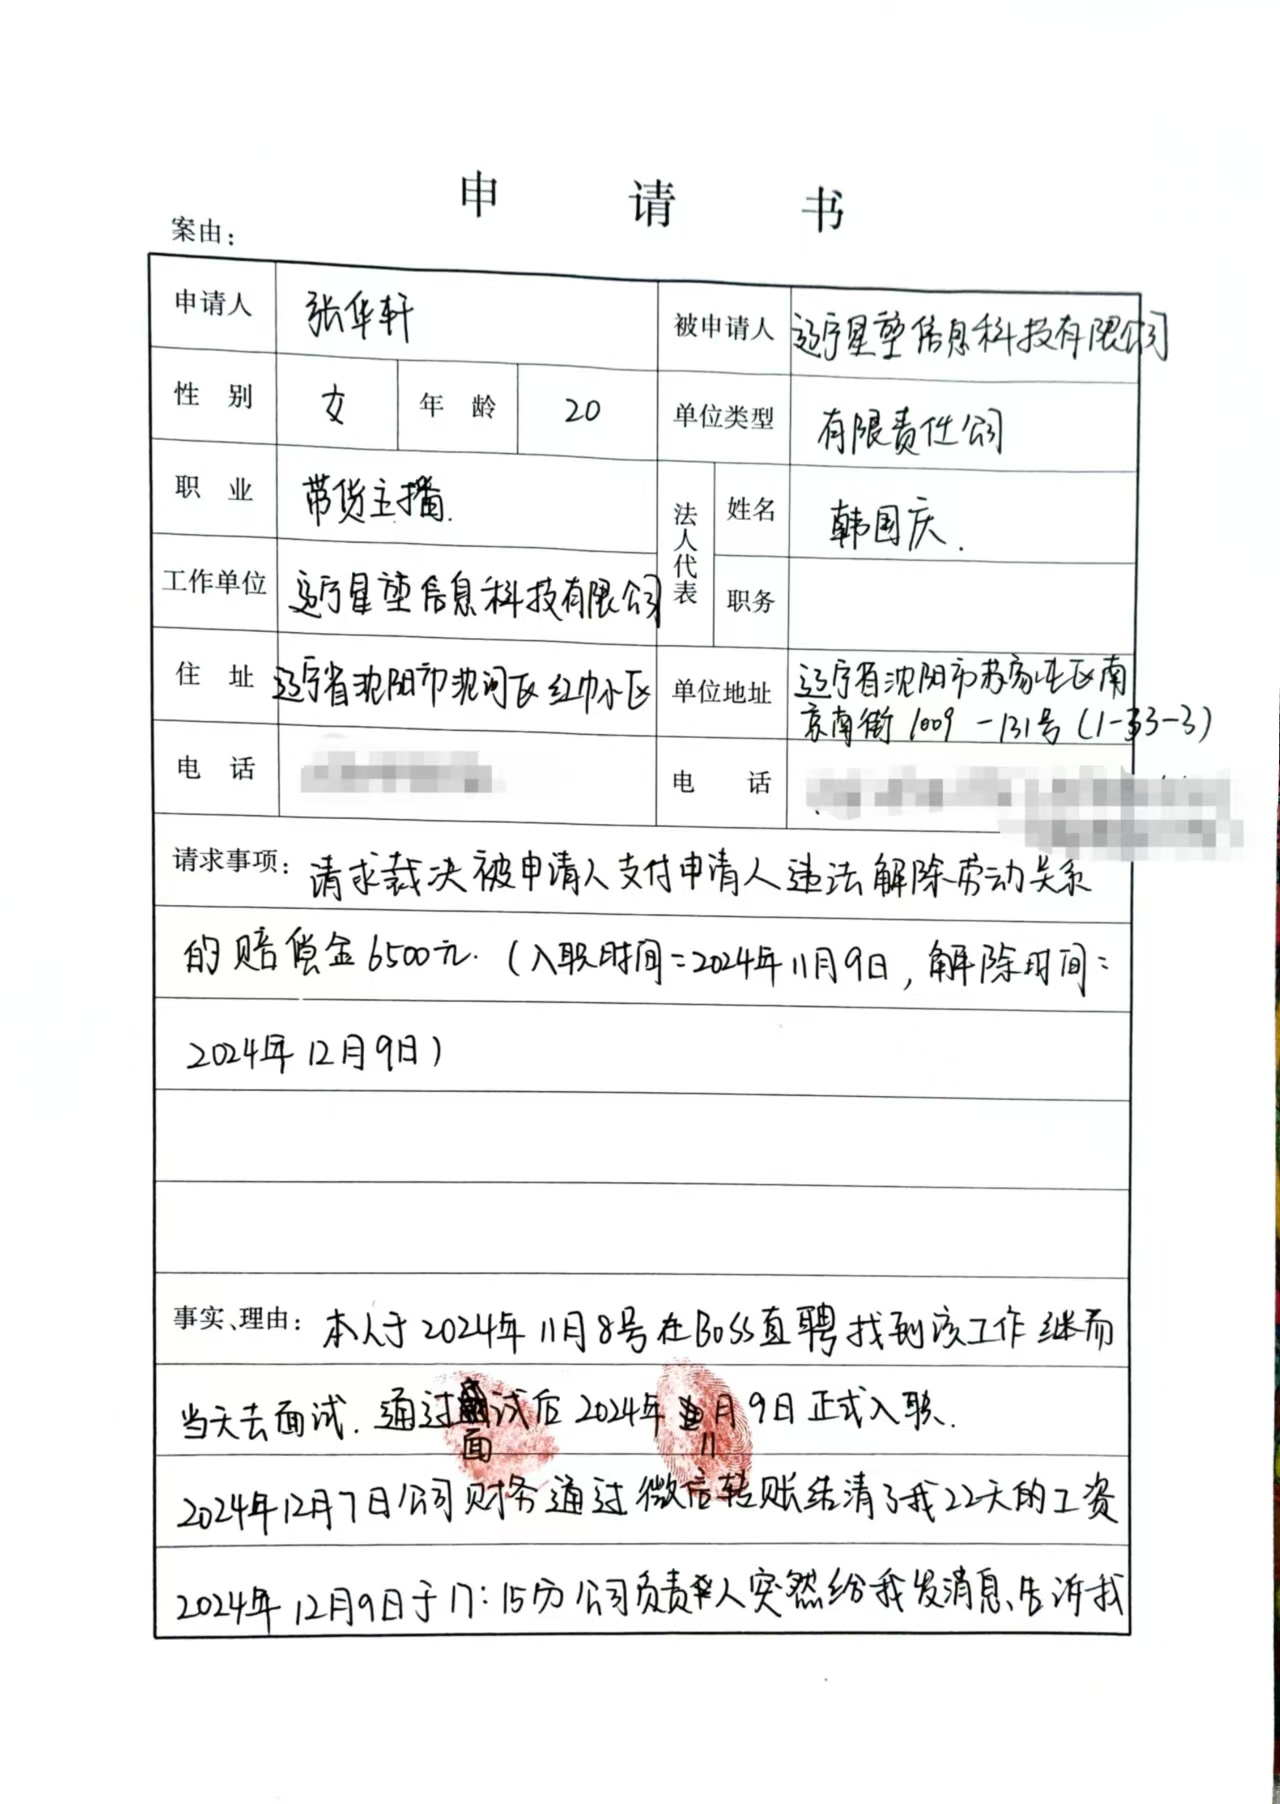 申请书
案由：
申请人 张华轩 被申请人 辽宁星堃信息科技有限公司
性别 女 年龄 20 单位类型 有限责任公司
职业 带货主播. 法人代表 姓名 韩国庆.
工作单位 辽宁星堃信息科技有限公司 职务
住址 辽宁省沈阳市沈河区红巾小区 单位地址 辽宁省沈阳市苏家屯区南
京南街1009-131号(1-33-3)
电话 电话
请求事项：请求裁决被申请人支付申请人违法解除劳动关系
的赔偿金6500元.(入职时间：2024年11月9日,解除时间：
2024年12月9日)
事实、理由：本人于2024年11月8号在Boss直聘找到该工作继而
当天去面试.通过面试后2024年11月9日正式入职.
2024年12月7日公司财务通过微信转账结清了我22天的工资
2024年12月9日于17:15分公司负责人突然给我发消息、告诉我